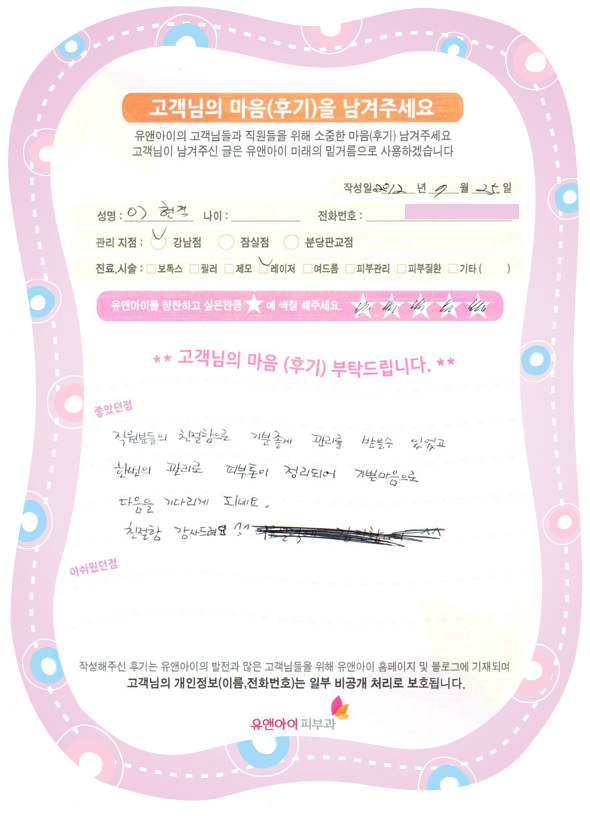 고객님의 마음(후기)을 남겨주세요
유앤아이의 고객님들과 직원들을 위해 소중한 마음(후기) 남겨주세요
고객님이 남겨주신 글은 유앤아이 미래의 밑거름으로 사용하겠습니다
작성일 2012 년 9 월 25 일
성명 : 이 현적 나이 : 전화번호 :
관리 지점 : 강남점 잠실점 분당판교점
진료,시술 : 보톡스 필러 제모 레이저 여드름 피부관리 피부질환 기타 ( )
유앤아이를 칭찬하고 싶은만큼 ★ 에 색칠 해주세요.
** 고객님의 마음 (후기) 부탁드립니다. **
좋았던점
직원분들의 친절함으로 기분좋게 관리를 받을수 있었고
한번의 관리로 피부톤이 정리되어 기쁜마음으로
다음을 기다리게 되네요.
친절함 감사드려요 ^^
아쉬웠던점
작성해주신 후기는 유앤아이의 발전과 많은 고객님들을 위해 유앤아이 홈페이지 및 블로그에 기재되며
고객님의 개인정보(이름,전화번호)는 일부 비공개 처리로 보호됩니다.
유앤아이 피부과